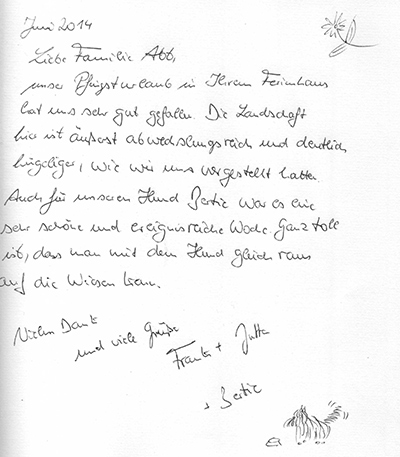 Juni 2014
Liebe Familie Abb,
unser Pfingsturlaub in Ihrem Ferienhaus
hat uns sehr gut gefallen. Die Landschaft
hier ist äußerst abwechslungsreich und deutlich
hügeliger, wie wir uns vorgestellt hatten.
Auch für unseren Hund Bertie war es eine
sehr schöne und ereignisreiche Woche. Ganz toll
ist, dass man mit dem Hund gleich raus
auf die Wiesen kann.
Vielen Dank
und viele Grüße
Frank + Jutta
+ Bertie